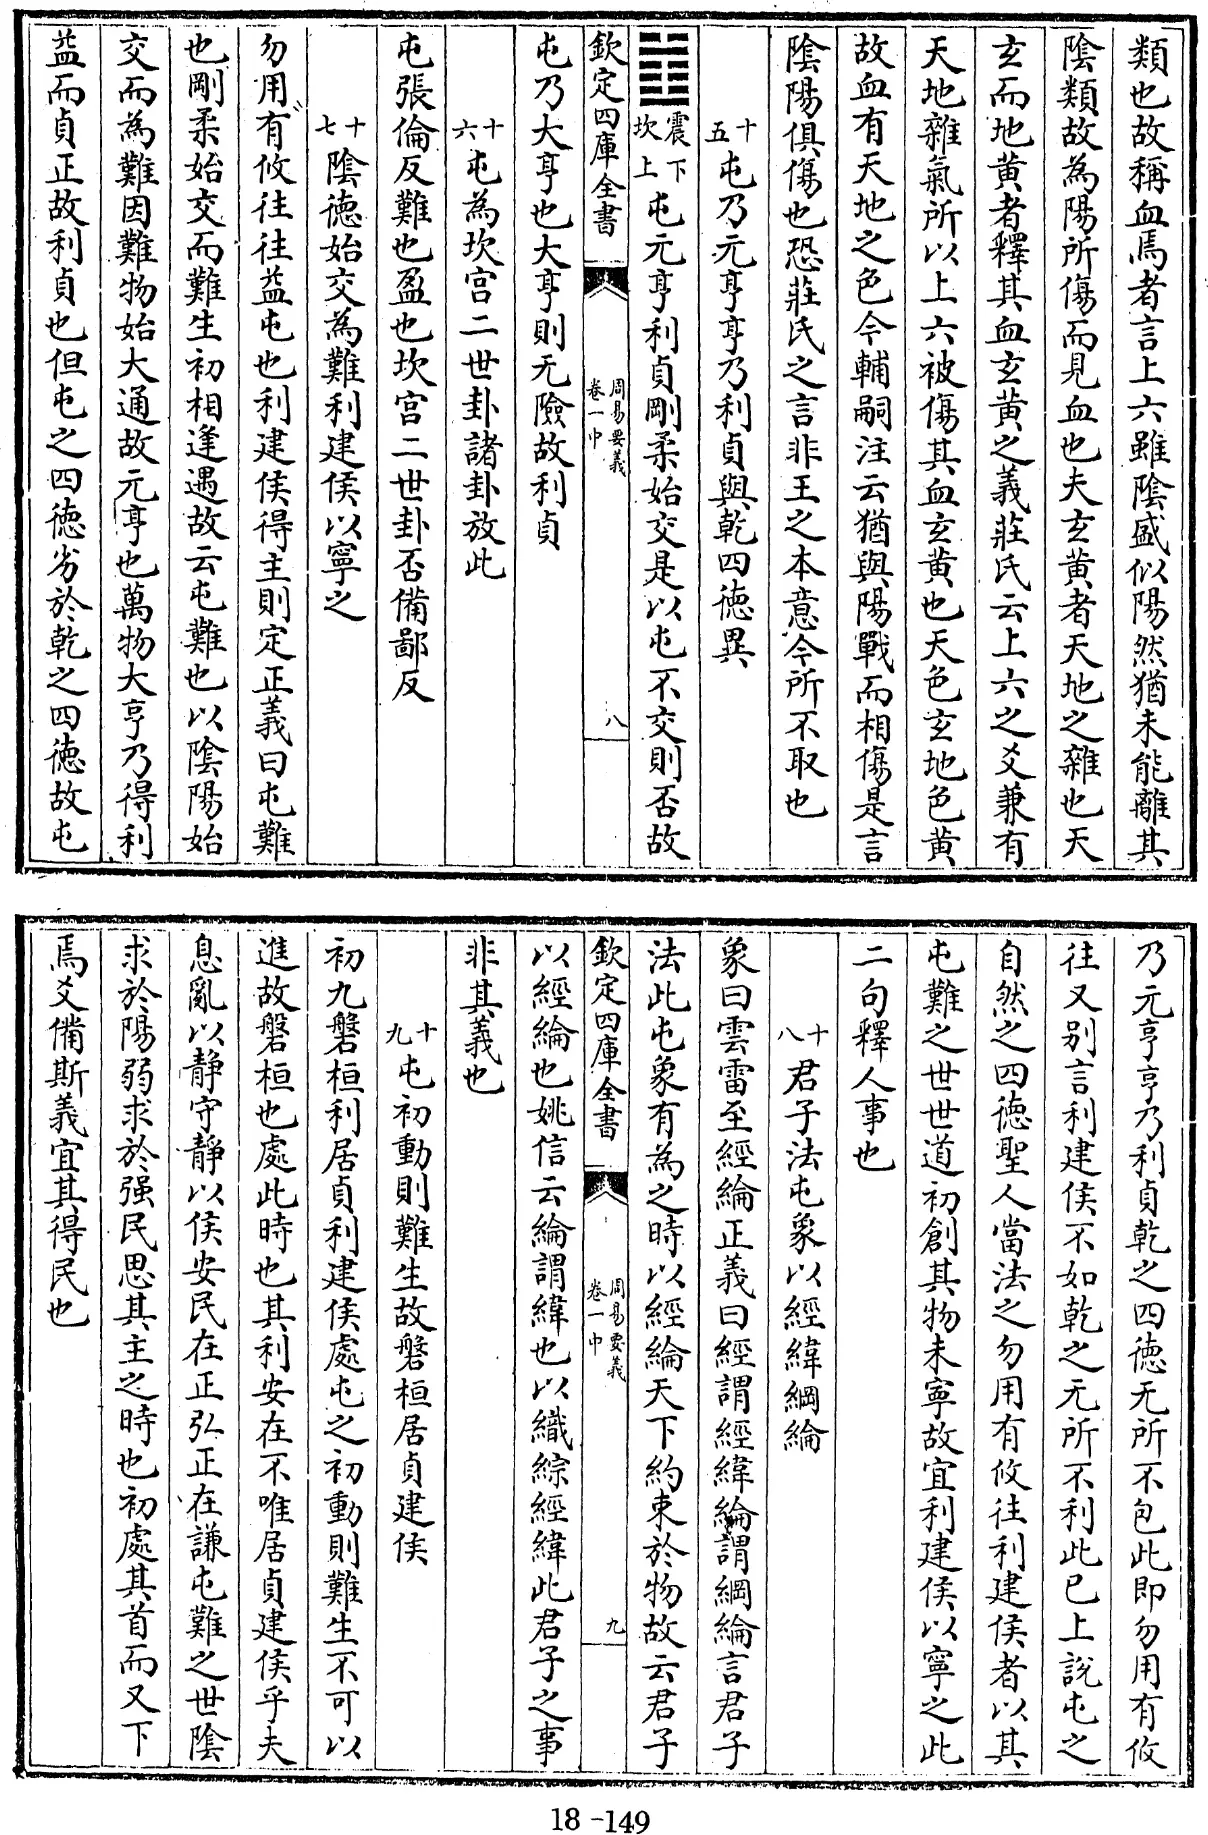 類也故稱血焉者言上六雖陰盛似陽然猶未能離其
陰類故為陽所傷而見血也夫玄黄者天地之雜也天
玄而地黄者釋其血玄黄之義莊氏云上六之爻兼有
天地雜氣所以上六被傷其血玄黄也天色玄地色黄
故血有天地之色今輔嗣注云猶與陽戰而相傷是言
陰陽俱傷也恐莊氏之言非王之本意今所不取也
十五 屯乃元亨亨乃利貞與乾四徳異
震下坎上 屯元亨利貞剛柔始交是以屯不交則否故
欽定四庫全書 周易要義 卷一中 八
屯乃大亨也大亨則无險故利貞
十六 屯為坎宫二世卦諸卦放此
屯張倫反難也盈也坎宫二世卦否備鄙反
十七 陰徳始交為難利建侯以寧之
勿用有攸往往益屯也利建侯得主則定正義曰屯難
也剛柔始交而難生初相逢遇故云屯難也以陰陽始
交而為難因難物始大通故元亨也萬物大亨乃得利
益而貞正故利貞也但屯之四徳劣於乾之四徳故屯
乃元亨亨乃利貞乾之四徳无所不包此即勿用有攸
往又别言利建侯不如乾之无所不利此已上說屯之
自然之四徳聖人當法之勿用有攸往利建侯者以其
屯難之世世道初創其物未寧故宜利建侯以寧之此
二句釋人事也
十八 君子法屯象以經緯綱綸
象曰雲雷至經綸正義曰經謂經緯綸謂綱綸言君子
法此屯象有為之時以經綸天下約束於物故云君子
欽定四庫全書 周易要義 卷一中 九
以經綸也姚信云綸謂緯也以織綜經緯此君子之事
非其義也
十九 屯初動則難生故磐桓居貞建侯
初九磐桓利居貞利建侯處屯之初動則難生不可以
進故磐桓也處此時也其利安在不唯居貞建侯乎夫
息亂以静守静以侯安民在正弘正在謙屯難之世陰
求於陽弱求於强民思其主之時也初處其首而又下
焉爻備斯義宜其得民也
18-149